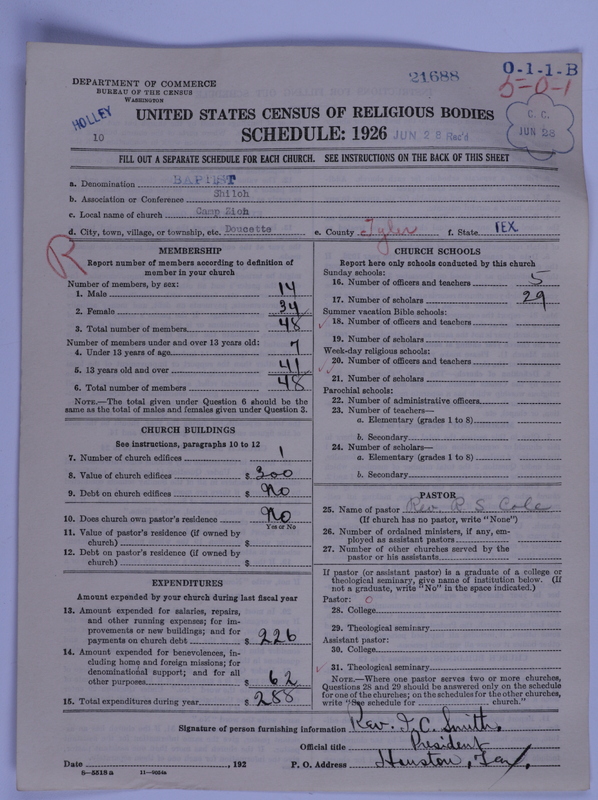 21688
O-1-1-B
5-0-1
DEPARTMENT OF COMMERCE
BUREAU OF THE CENSUS
WASHINGTON
HOLLEY
10
UNITED STATES CENSUS OF RELIGIOUS BODIES
SCHEDULE: 1926
JUN 28 Rec'd
C. C.
JUN 28
FILL OUT A SEPARATE SCHEDULE FOR EACH CHURCH. SEE INSTRUCTIONS ON THE BACK OF THIS SHEET
a. Denomination BAPTIST
b. Association or Conference Shiloh
c. Local name of church Camp Zion
d. City, town, village, or township, etc. Doucette e. County Tyler f. State TEX.
R
MEMBERSHIP
Report number of members according to definition of
member in your church
Number of members, by sex:
1. Male 14
2. Female 34
3. Total number of members 48
Number of members under and over 13 years old:
4. Under 13 years of age 7
5. 13 years old and over 41
6. Total number of members 48
NOTE.—The total given under Question 6 should be the
same as the total of males and females given under Question 3.
CHURCH BUILDINGS
See instructions, paragraphs 10 to 12
7. Number of church edifices 1
8. Value of church edifices $ 300
9. Debt on church edifices $ No
10. Does church own pastor's residence No
Yes or No
11. Value of pastor's residence (if owned by
church) $
12. Debt on pastor's residence (if owned by
church) $
EXPENDITURES
Amount expended by your church during last fiscal year
13. Amount expended for salaries, repairs,
and other running expenses; for im-
provements or new buildings; and for
payments on church debt $ 226
14. Amount expended for benevolences, in-
cluding home and foreign missions; for
denominational support; and for all
other purposes $ 62
15. Total expenditures during year $ 288
CHURCH SCHOOLS
Report here only schools conducted by this church
Sunday schools:
16. Number of officers and teachers 5
17. Number of scholars 29
Summer vacation Bible schools:
18. Number of officers and teachers
19. Number of scholars
Week-day religious schools:
20. Number of officers and teachers
21. Number of scholars
Parochial schools:
22. Number of administrative officers
23. Number of teachers—
a. Elementary (grades 1 to 8)
b. Secondary
24. Number of scholars—
a. Elementary (grades 1 to 8)
b. Secondary
PASTOR
25. Name of pastor Rev. R S Cole
(If church has no pastor, write "None")
26. Number of ordained ministers, if any, em-
ployed as assistant pastors
27. Number of other churches served by the
pastor or his assistants
If pastor (or assistant pastor) is a graduate of a college or
theological seminary, give name of institution below. (If
not a graduate, write "No" in the space indicated.)
Pastor: 0
28. College
29. Theological seminary
Assistant pastor:
30. College
31. Theological seminary
NOTE.—Where one pastor serves two or more churches,
Questions 28 and 29 should be answered only on the schedule
for one of the churches; on the schedules for the other churches,
write "See schedule for church."
Signature of person furnishing information Rev. J. C. Smith,
Official title President
Date , 192 P. O. Address Houston, Tex.
6—5518a 11—9034a